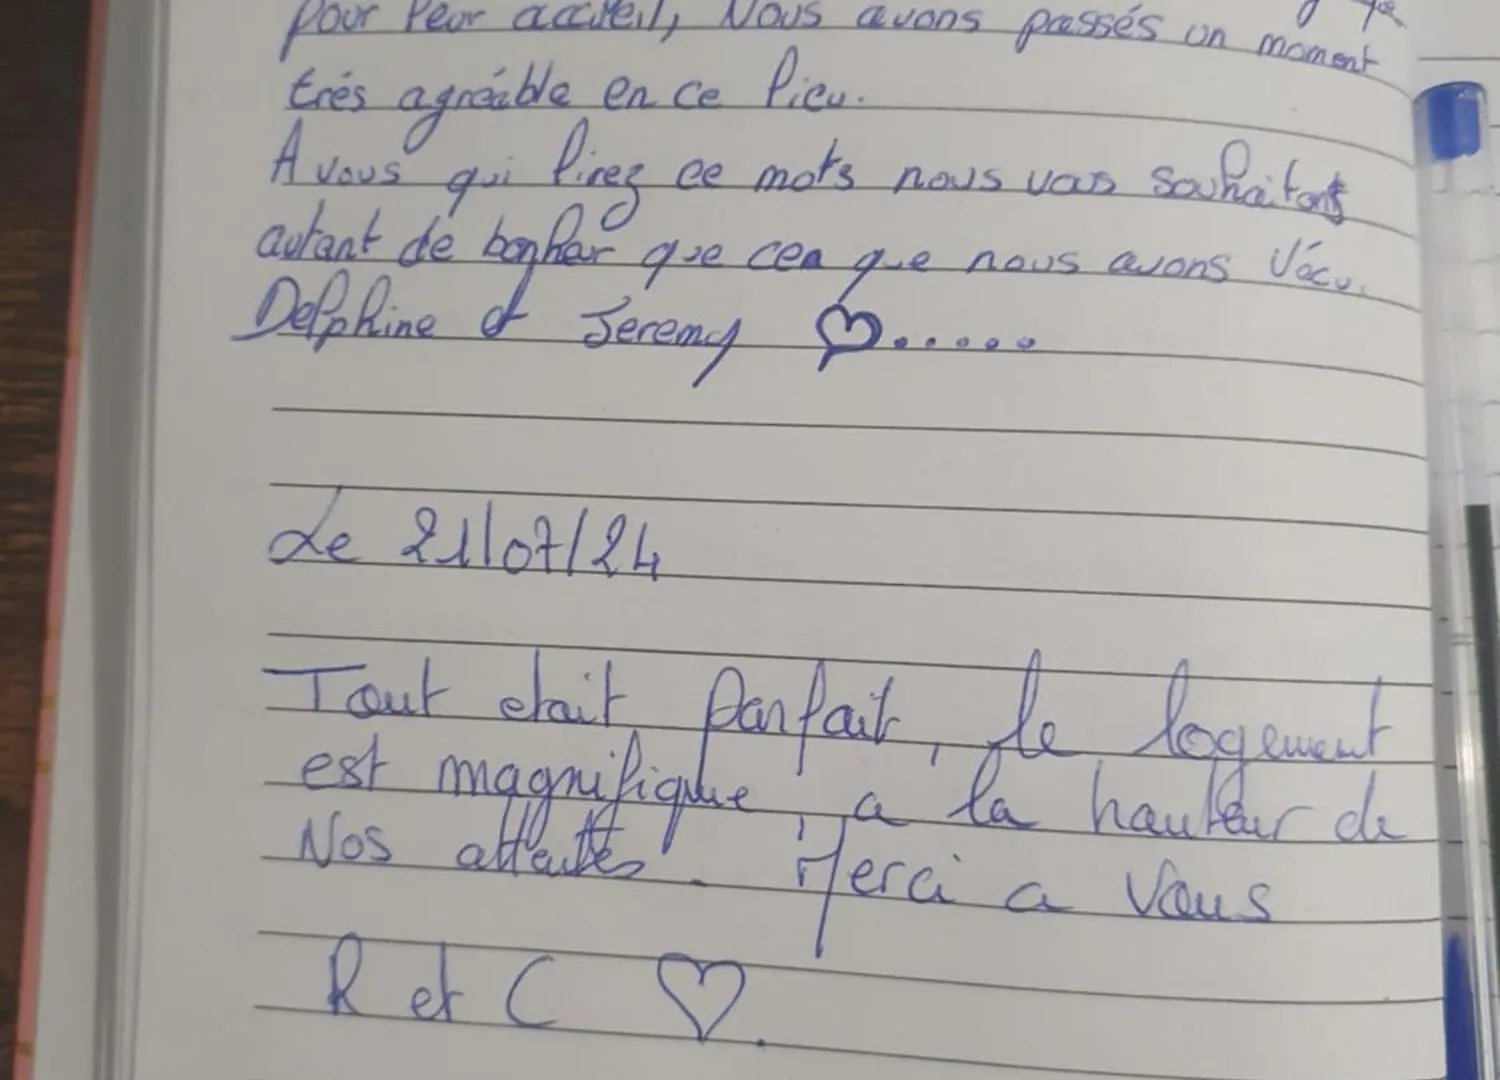 pour leur accueil, Nous avons passés un moment
trés agréable en ce lieu.
A vous qui lirez ce mots nous vous souhaitons
autant de bonheur que cea que nous avons vécu.
Delphine et Jeremy ♡.....
Le 21/07/24
Tout etait parfait, le logement
est magnifique, a la hauteur de
Nos attentes. Merci a Vous
R et C ♡.